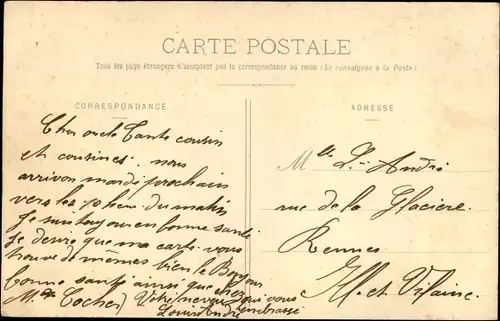 CARTE POSTALE
Tous les pays étrangers n'acceptent pas la correspondance au recto (Se renseigner à la Poste)
CORRESPONDANCE
ADRESSE
Cher oncle Tante cousin
et cousines. nous
arrivon mardi prochain
vers les 10 heur du matin
Je suis toujour en bonne santé
Je desire que ma carte vous
trouve de mêmes bien le Bonjour
bonne santé ainsi que chez
Mme Cocher Votre neveu qui vous
Louis André embrasse
Mlle L. André
rue de la Glacière.
Rennes
Ill. et Vilaine.